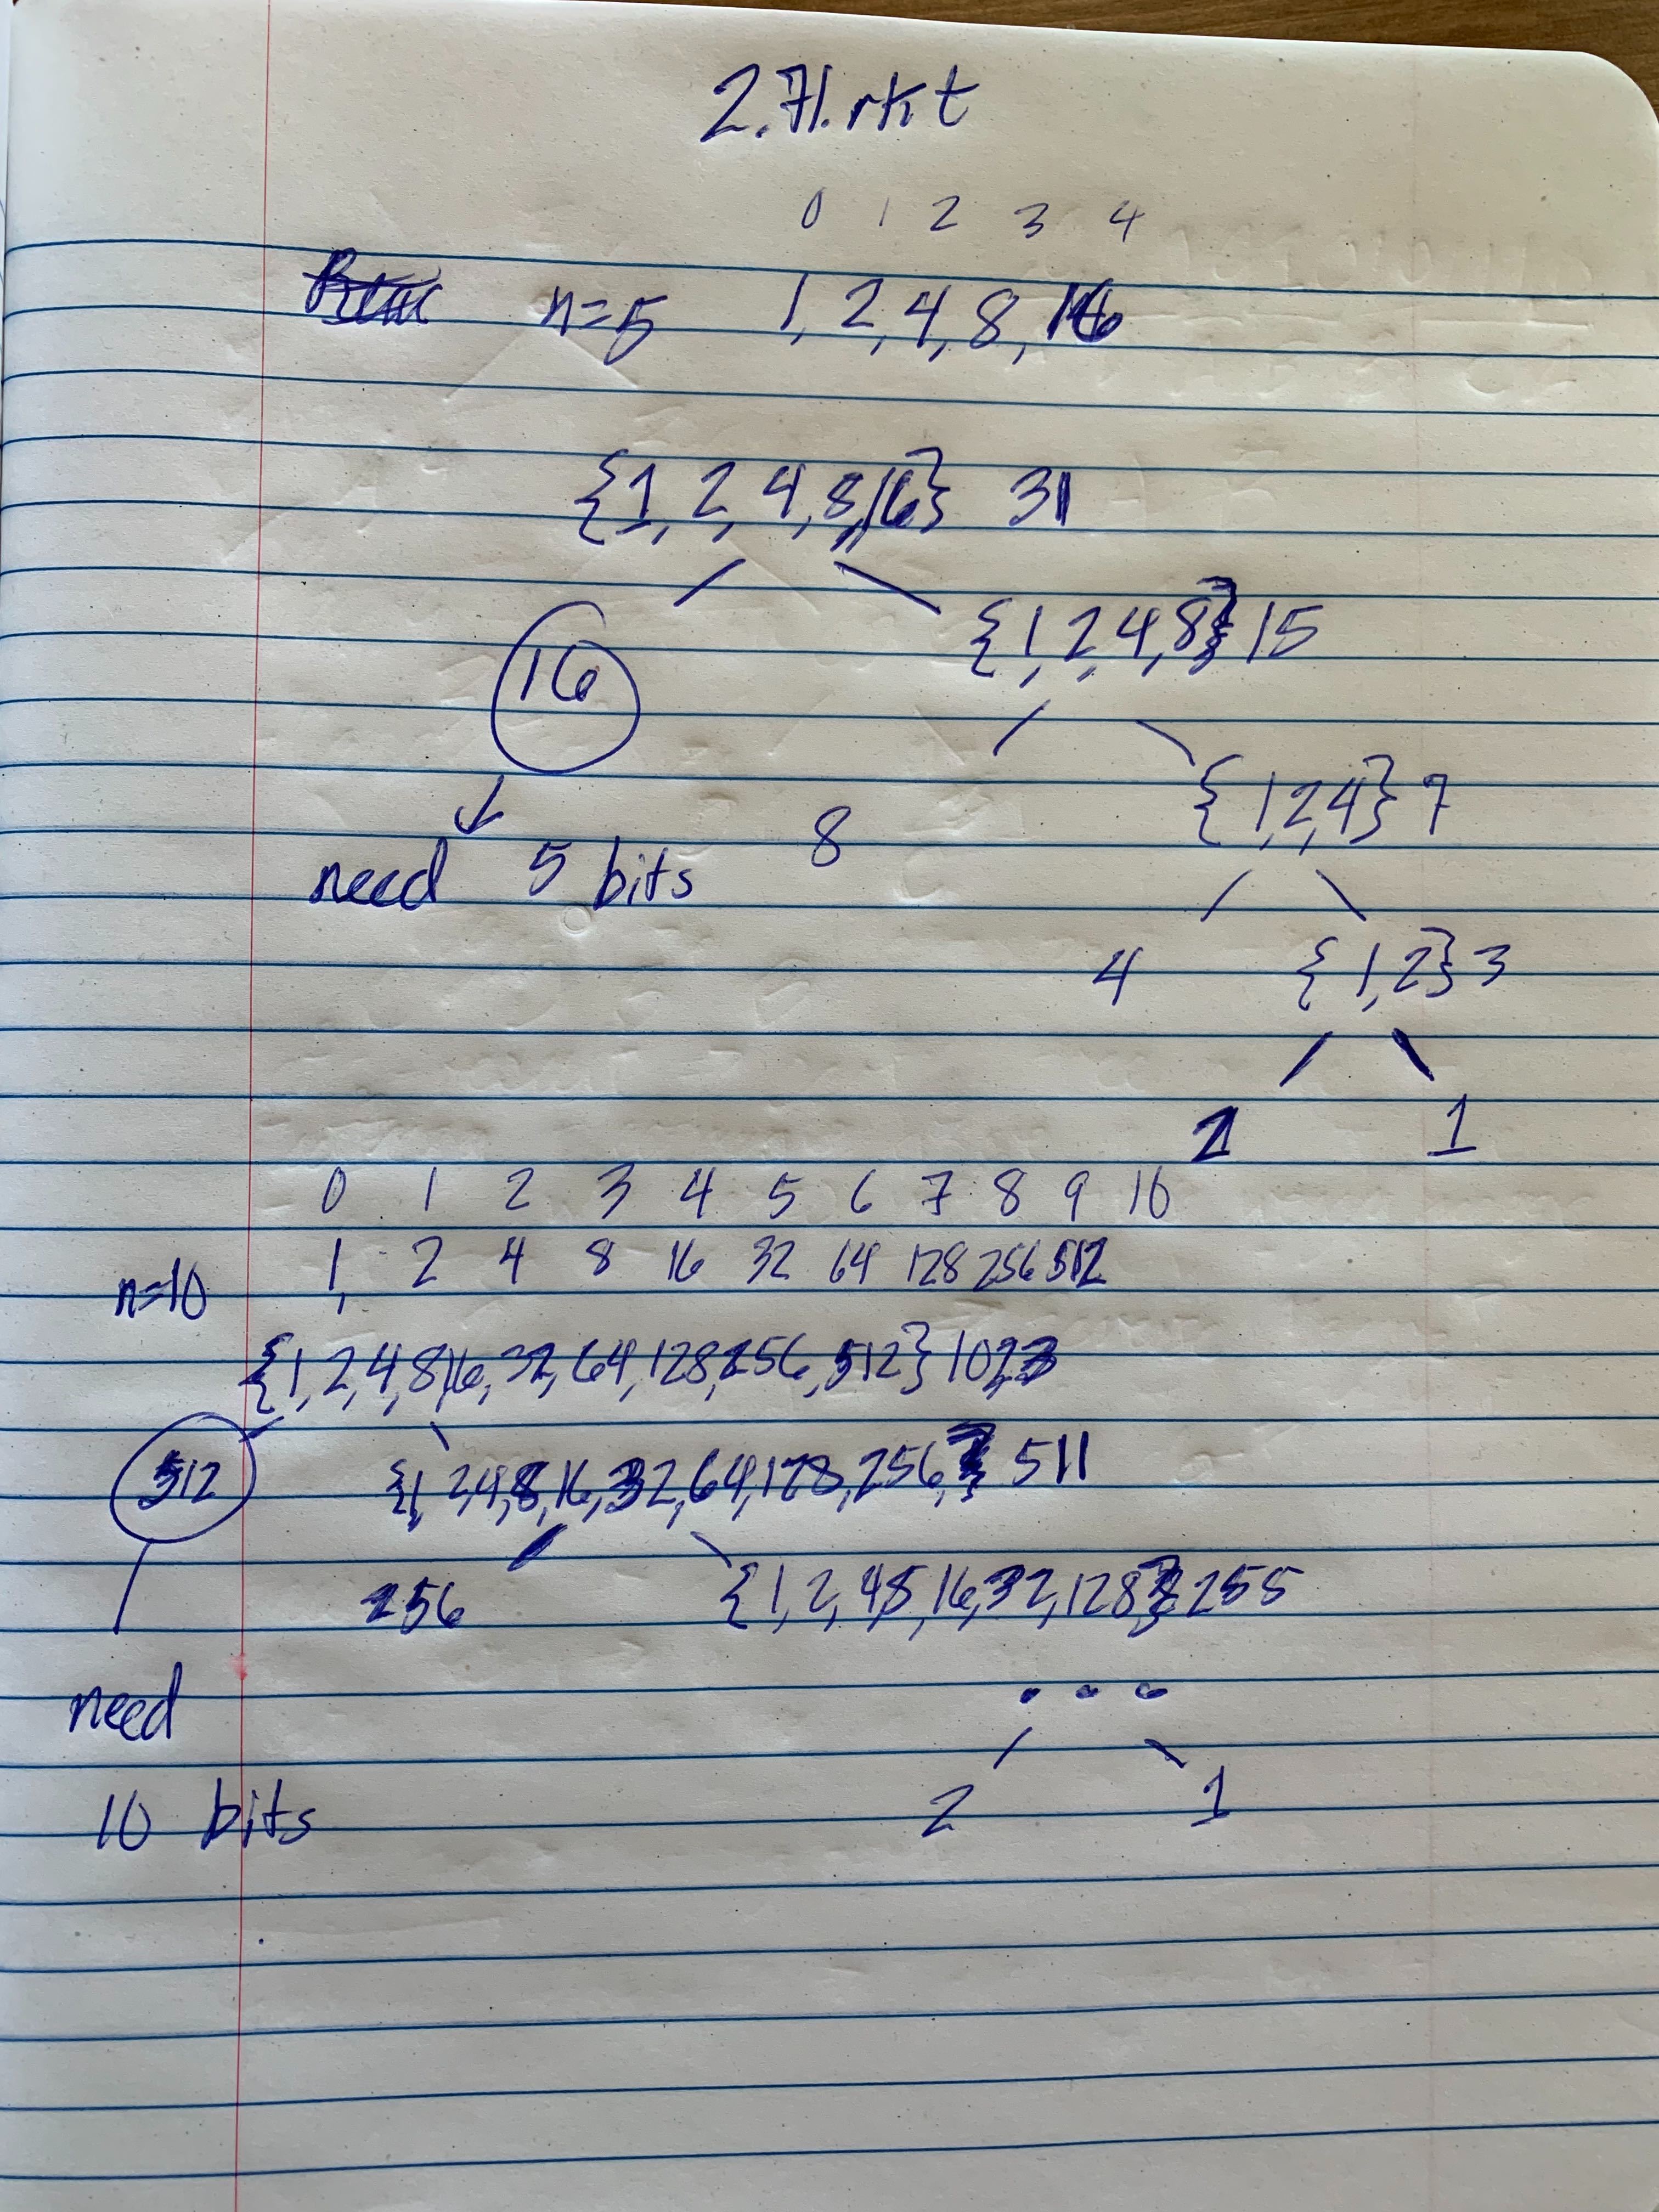 2.71.rkt
0 1 2 3 4
n=5 1, 2, 4, 8, 16
{1, 2, 4, 8, 16} 31
16 {1, 2, 4, 8} 15
8 {1, 2, 4} 7
need 5 bits
4 {1, 2} 3
2 1
0 1 2 3 4 5 6 7 8 9 10
n=10 1, 2 4 8 16 32 64 128 256 512
{1, 2, 4, 8, 16, 32, 64, 128, 256, 512} 1023
512 {1, 2, 4, 8, 16, 32, 64, 128, 256,} 511
256 {1, 2, 4, 8, 16, 32, 128} 255
need ...
10 bits 2 1